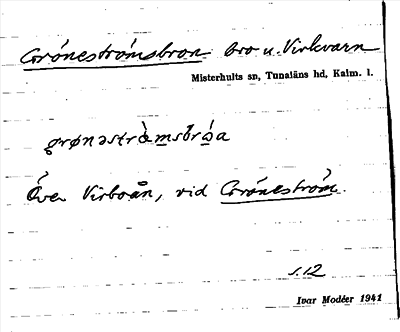 Gróneströmsbron bro u. Virkvarn
Misterhults sn, Tunaläns hd, Kalm. l.
Över Virboån, vid Gröneström.
s. 12
Ivar Modéer 1941